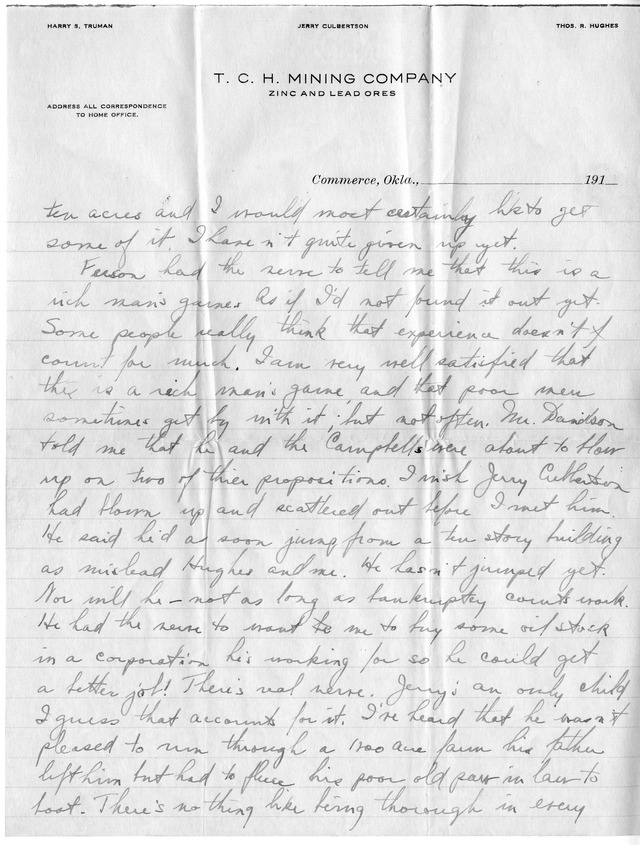 HARRY S. TRUMAN JERRY CULBERTSON THOS. R. HUGHES
T. C. H. MINING COMPANY
ZINC AND LEAD ORES
ADDRESS ALL CORRESPONDENCE
TO HOME OFFICE.
Commerce, Okla., 191
ten acres and I would most certainly like to get
some of it. I have n't quite given up yet.
Ferson had the nerve to tell me that this is a
rich man's game. As if I'd not found it out yet.
Some people really think that experience doesn't
count for much. I am very well satisfied that
this is a rich man's game and that poor men
sometimes get by with it, but not often. Mr. Davidson
told me that he and the Campbells were about to blow
up on two of thier propositions. I wish Jerry Culbertson
had blown up and scattered out before I met him.
He said he'd a soon jump from a ten story building
as mislead Hughes and me. He hasn't jumped yet.
Nor will he - not as long as bankruptcy courts work.
He had the nerve to want to me to buy some oil stock
in a corporation he's working for so he could get
a better job! There's real nerve. Jerry's an only child
I guess that accounts for it. I've heard that he wasn't
pleased to run through a 1200 acre farm his father
left him but had to fleece his poor old paw in law to
boot. There's nothing like being thorough in every